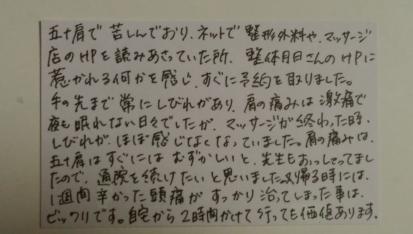 五十肩で苦しんでおり、ネットで整形外科や、マッサージ
店のHPを読みあさっていた所、整体月日さんのHPに
惹かれる何かを感じ、すぐに予約を取りました。
手の先まで常にしびれがあり、肩の痛みは激痛で
夜も眠れない日々でしたが、マッサージが終わった時、
しびれが、ほぼ感じなくなっていました。肩の痛みは、
五十肩はすぐにはむずかしいと、先生もおっしゃってまし
たので、通院を続けたいと思いました。又帰る時には、
1週間辛かった頭痛がすっかり治ってしまった事は、
ビックリです。自宅から2時間かけて行っても価値あります。